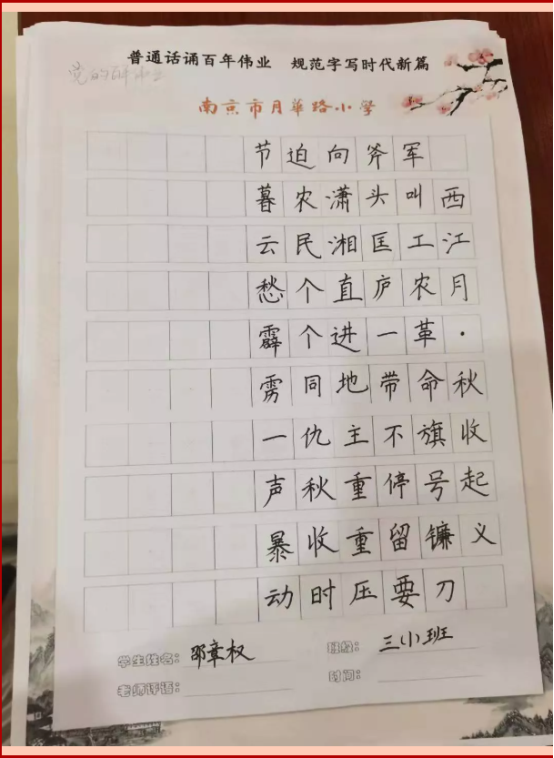 普通话诵百年伟业 规范字写时代新篇
南京市月华路小学
西江月·秋收起义
军叫工农革命旗号镰刀
斧头匡庐一带不停留要
向潇湘直进地主重重压
迫农民个个同仇秋收时
节暮云愁霹雳一声暴动
学生姓名：邵章权 班级：三(1)班
老师评语： 时间：